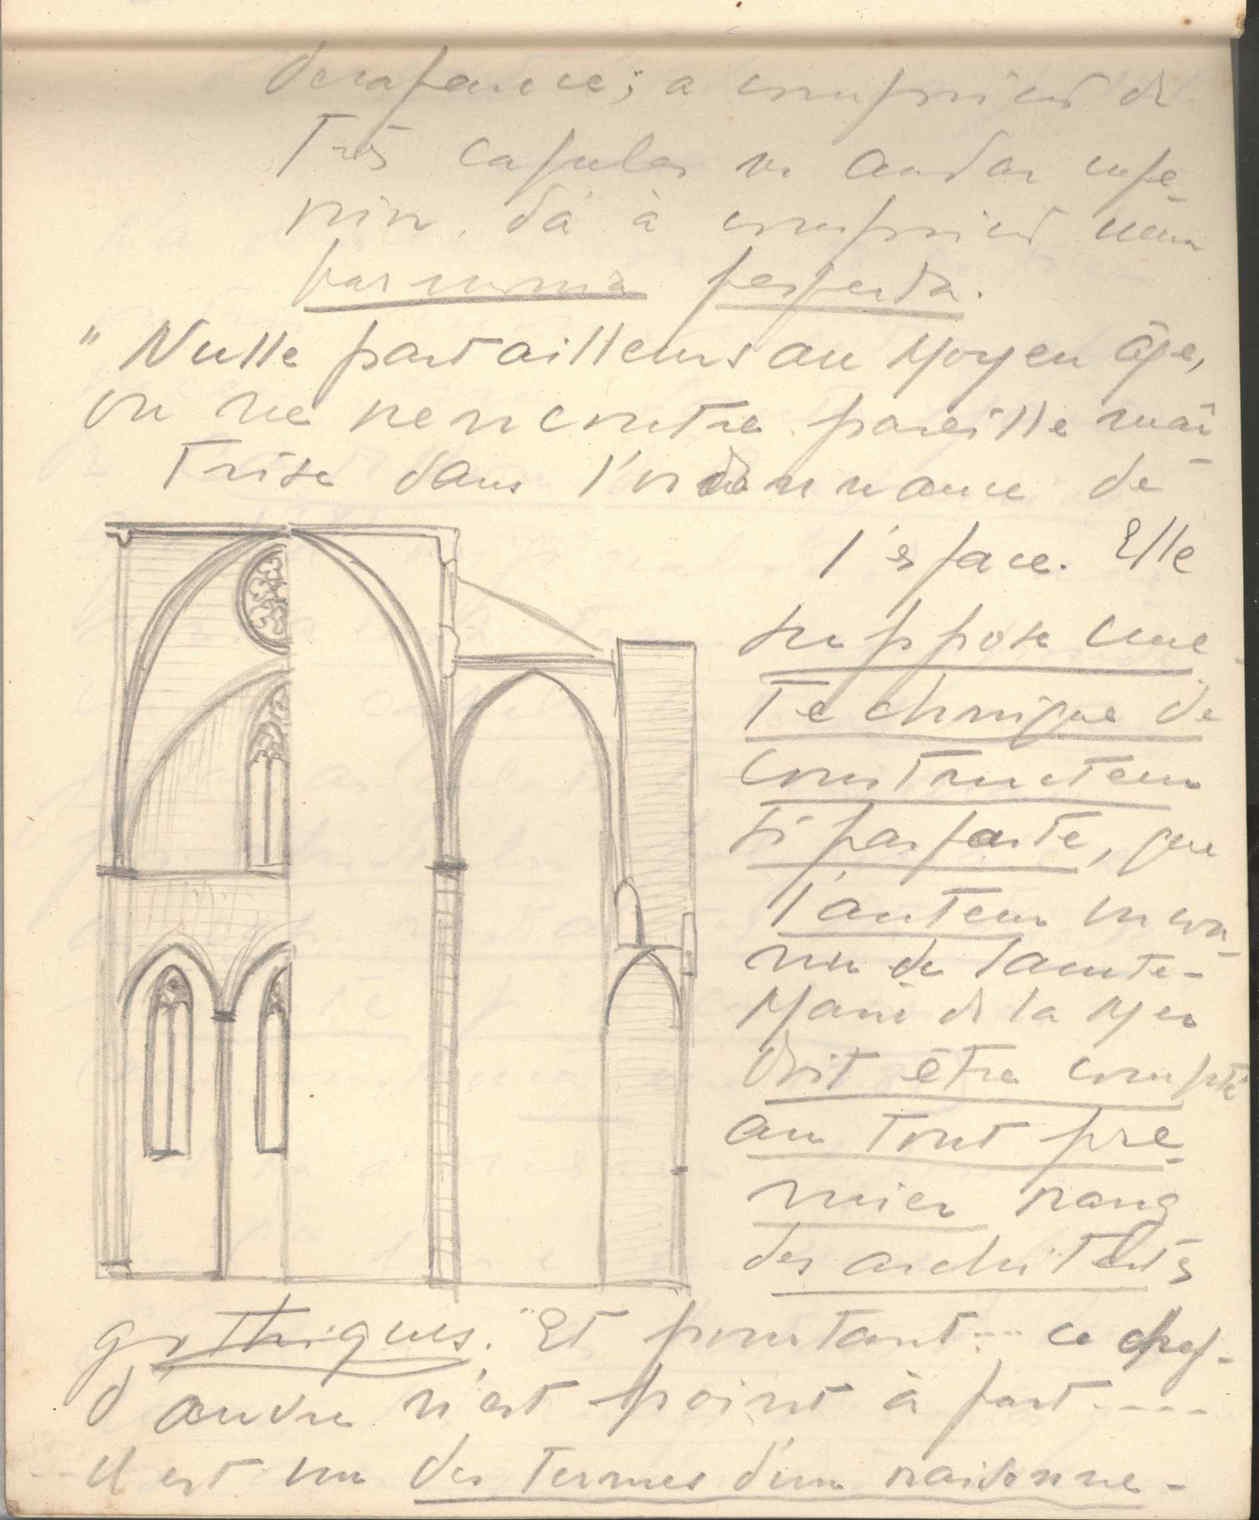 desafiance; a comprimir di
Tres Capulas
rin. dá à comprimir
harmonia perfecta.
" Nulle part ailleurs au Moyen âge,
on ne rencontre pareille maî
trise dans l'ordonnance de
l'espace. Elle
suppose une
Technique de
Constructeur
si parfaite, que
l'auteur incon-
nu de Sainte-
Marie de la Mer
doit être compté
au tout pre-
mier rang
des architectes
gothiques." Et pourtant... ce chef-
d'œuvre n'est point à part....
il est un des termes d'un raisonne-